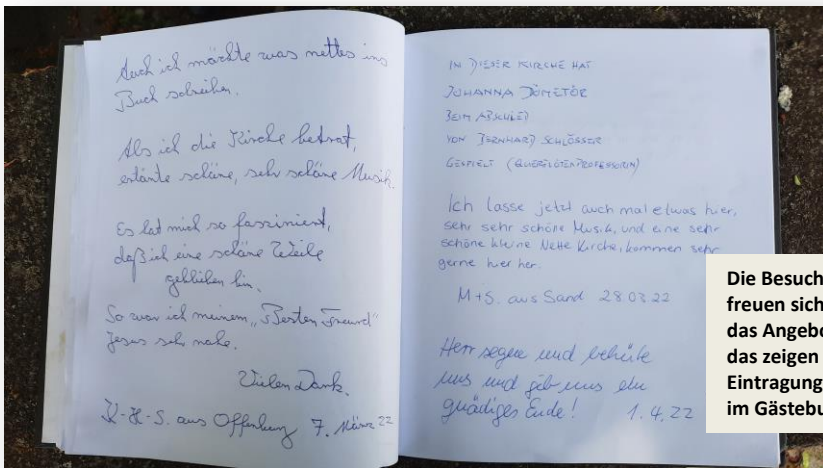 Auch ich möchte was nettes ins
Buch schreiben.
Als ich die Kirche betrat,
ertönte schöne, sehr schöne Musik.
Es hat mich so fasziniert,
daß ich eine schöne Weile
geblieben bin.
So war ich meinem „Besten Freund"
Jesus sehr nahe.
Vielen Dank.
K-H-S. aus Offenburg 7. März 22
IN DIESER KIRCHE HAT
JOHANNA DÖMÖTÖR
BEIM ABSCHIED
VON BERNHARD SCHLÖSSER
GESPIELT (QUERFLÖTENPROFESSORIN)
Ich lasse jetzt auch mal etwas hier,
sehr sehr schöne Musik, und eine sehr
schöne kleine Nette Kirche, kommen sehr
gerne hier her.
M+S. aus Sand 28.03.22
Herr segne und behüte
uns und gib uns ein
gnädiges Ende! 1.4.22
Die Besuch
freuen sich
das Angebo
das zeigen
Eintragung
im Gästebu